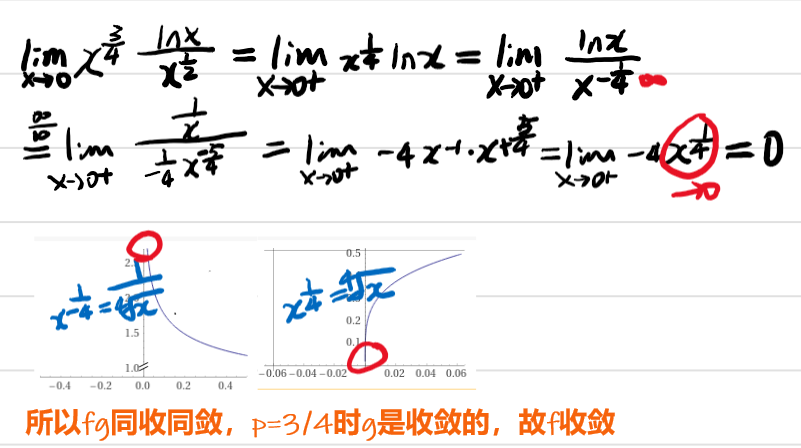 lim x→0 x^{3/4} lnx / x^{1/2} = lim x→0+ x^{1/4} lnx = lim x→0+ lnx / x^{-1/4} ∞
∞/∞ = lim x→0+ (1/x) / (1/-4 x^{-5/4}) = lim x→0+ -4x^{-1}·x^{+5/4} = lim x→0+ -4x^{1/4} = 0
→0
x^{1/-4} = 1/∜x
2.
1.5
1.0
-0.4 -0.2 0.0 0.2 0.4
x^{1/4} = ∜x
0.5
0.2
0.1
-0.06 -0.04 -0.02 0.02 0.04 0.06
所以fg同收同敛，p=3/4时g是收敛的，故f收敛